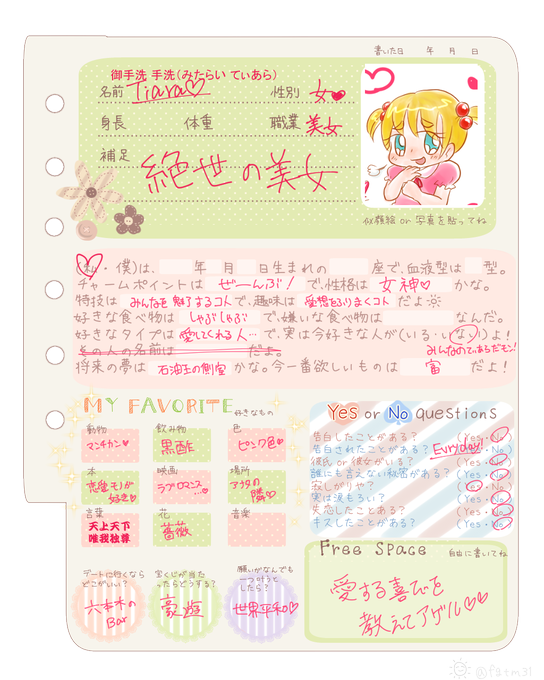 書いた日 年 月 日
御手洗 手洗(みたらい てぃあら)
名前 Tiara♡ 性別 女♥
身長 体重 職業 美女
補足 絶世の美女
似顔絵 or 写真を貼ってね
(私・僕)は、 年 月 日生まれの 座で、血液型は 型。
チャームポイントは ぜーんぶ! で、性格は 女神♡ かな。
特技は みんなを魅了するコト で、趣味は 愛想をふりまくコト だよ☼
好きな食べ物は しゃぶしゃぶ で、嫌いな食べ物は なんだ。
好きなタイプは 愛してくれる人… で、実は今好きな人が(いる・いない)よ!
その人の名前は だよ。 みんなのてぃあらだモン!
将来の夢は 石油王の側室 かな。今一番欲しいものは 富 だよ!
MY FAVORITE 好きなもの
動物 飲み物 色
マンチカン♡ 黒酢 ピンク色♥
本 映画 場所
恋催モノが好き♡ ラブロマンス…♡ アナタの隣♡
言葉 花 音楽
天上天下
唯我独尊
薔薇
デートに行くなら
どこがいい?
六本木の
Bar
宝くじが当た
ったらどうする?
豪遊
願いがなんでも
一つ叶うと
したら?
世界平和♡
Yes or No questions
告白したことがある? (Yes・No)
告白されたことがある? Everyday! (Yes・No)
彼氏 or 彼女がいる? (Yes・No)
誰にも言えない秘密がある? (Yes・No)
寂しがりや? (Yes・No)
実は涙もろい? (Yes・No)
失恋したことある? (Yes・No)
キスしたことがある? (Yes・No)
Free Space 自由に書いてね
愛する喜びを
教えてアゲル♡♡
@fatm31